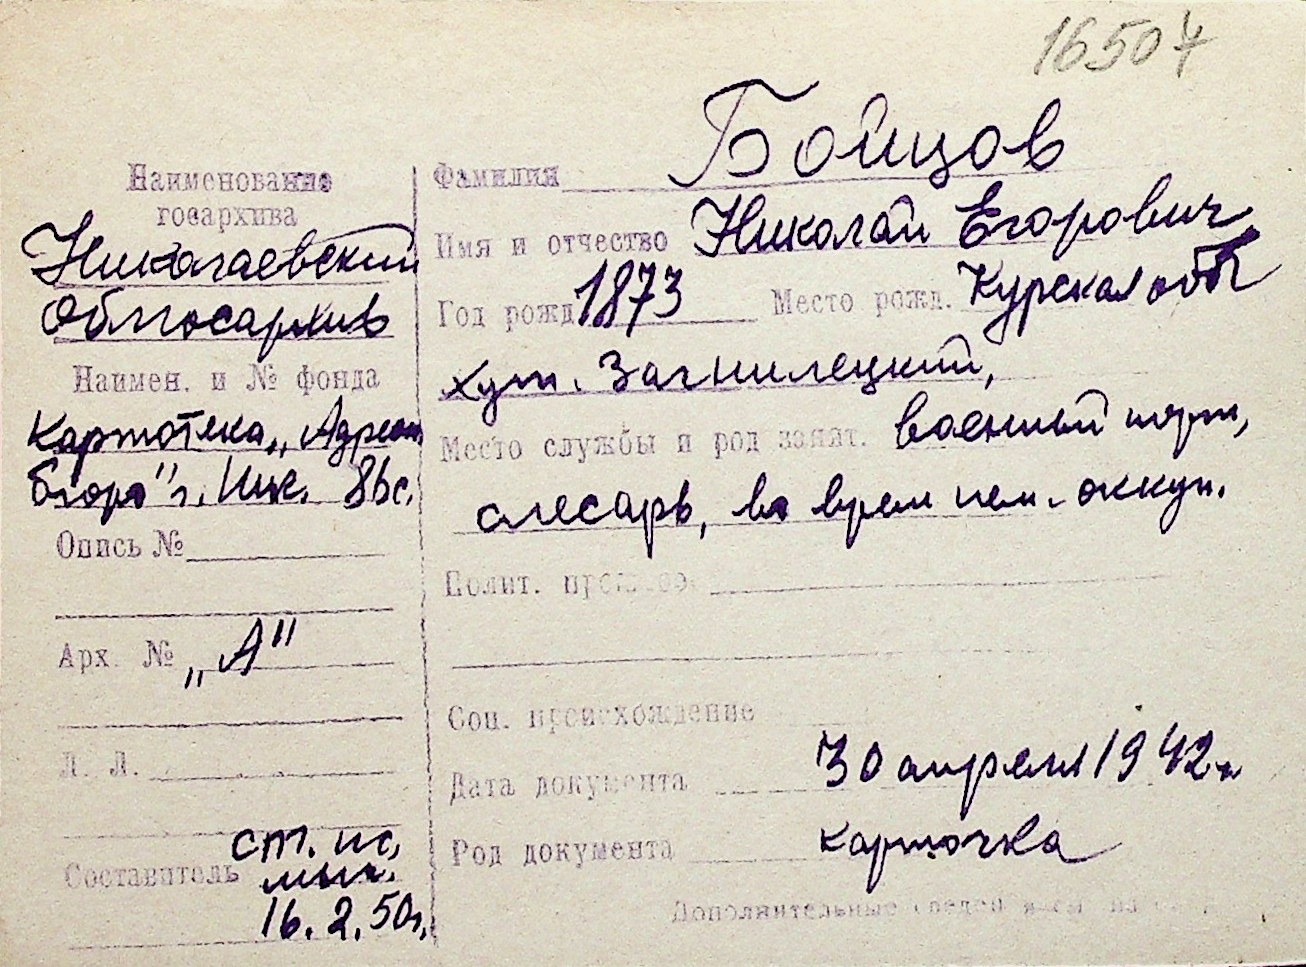 16504
Наименование
госархива
Николаевский
Облгосархив
Наимен. и № фонда
Картотека „Адресн
бюро" г. Ник. 86с.
Опись №
Арх. № „А"
Л. Л.
Составитель ст. ис,
16.2.50г.
Фамилия Бойцов
Имя и отчество Николай Егорович
Год рожд 1873 Место рожд. Курская обл
хут. Загнилецкий,
Место службы и род занят. военный порт,
слесарь, во врем нем. оккуп.
Полит.
Соц. происхождение
Дата документа 30 апреля 1942г
Род документа карточка
Дополнительные